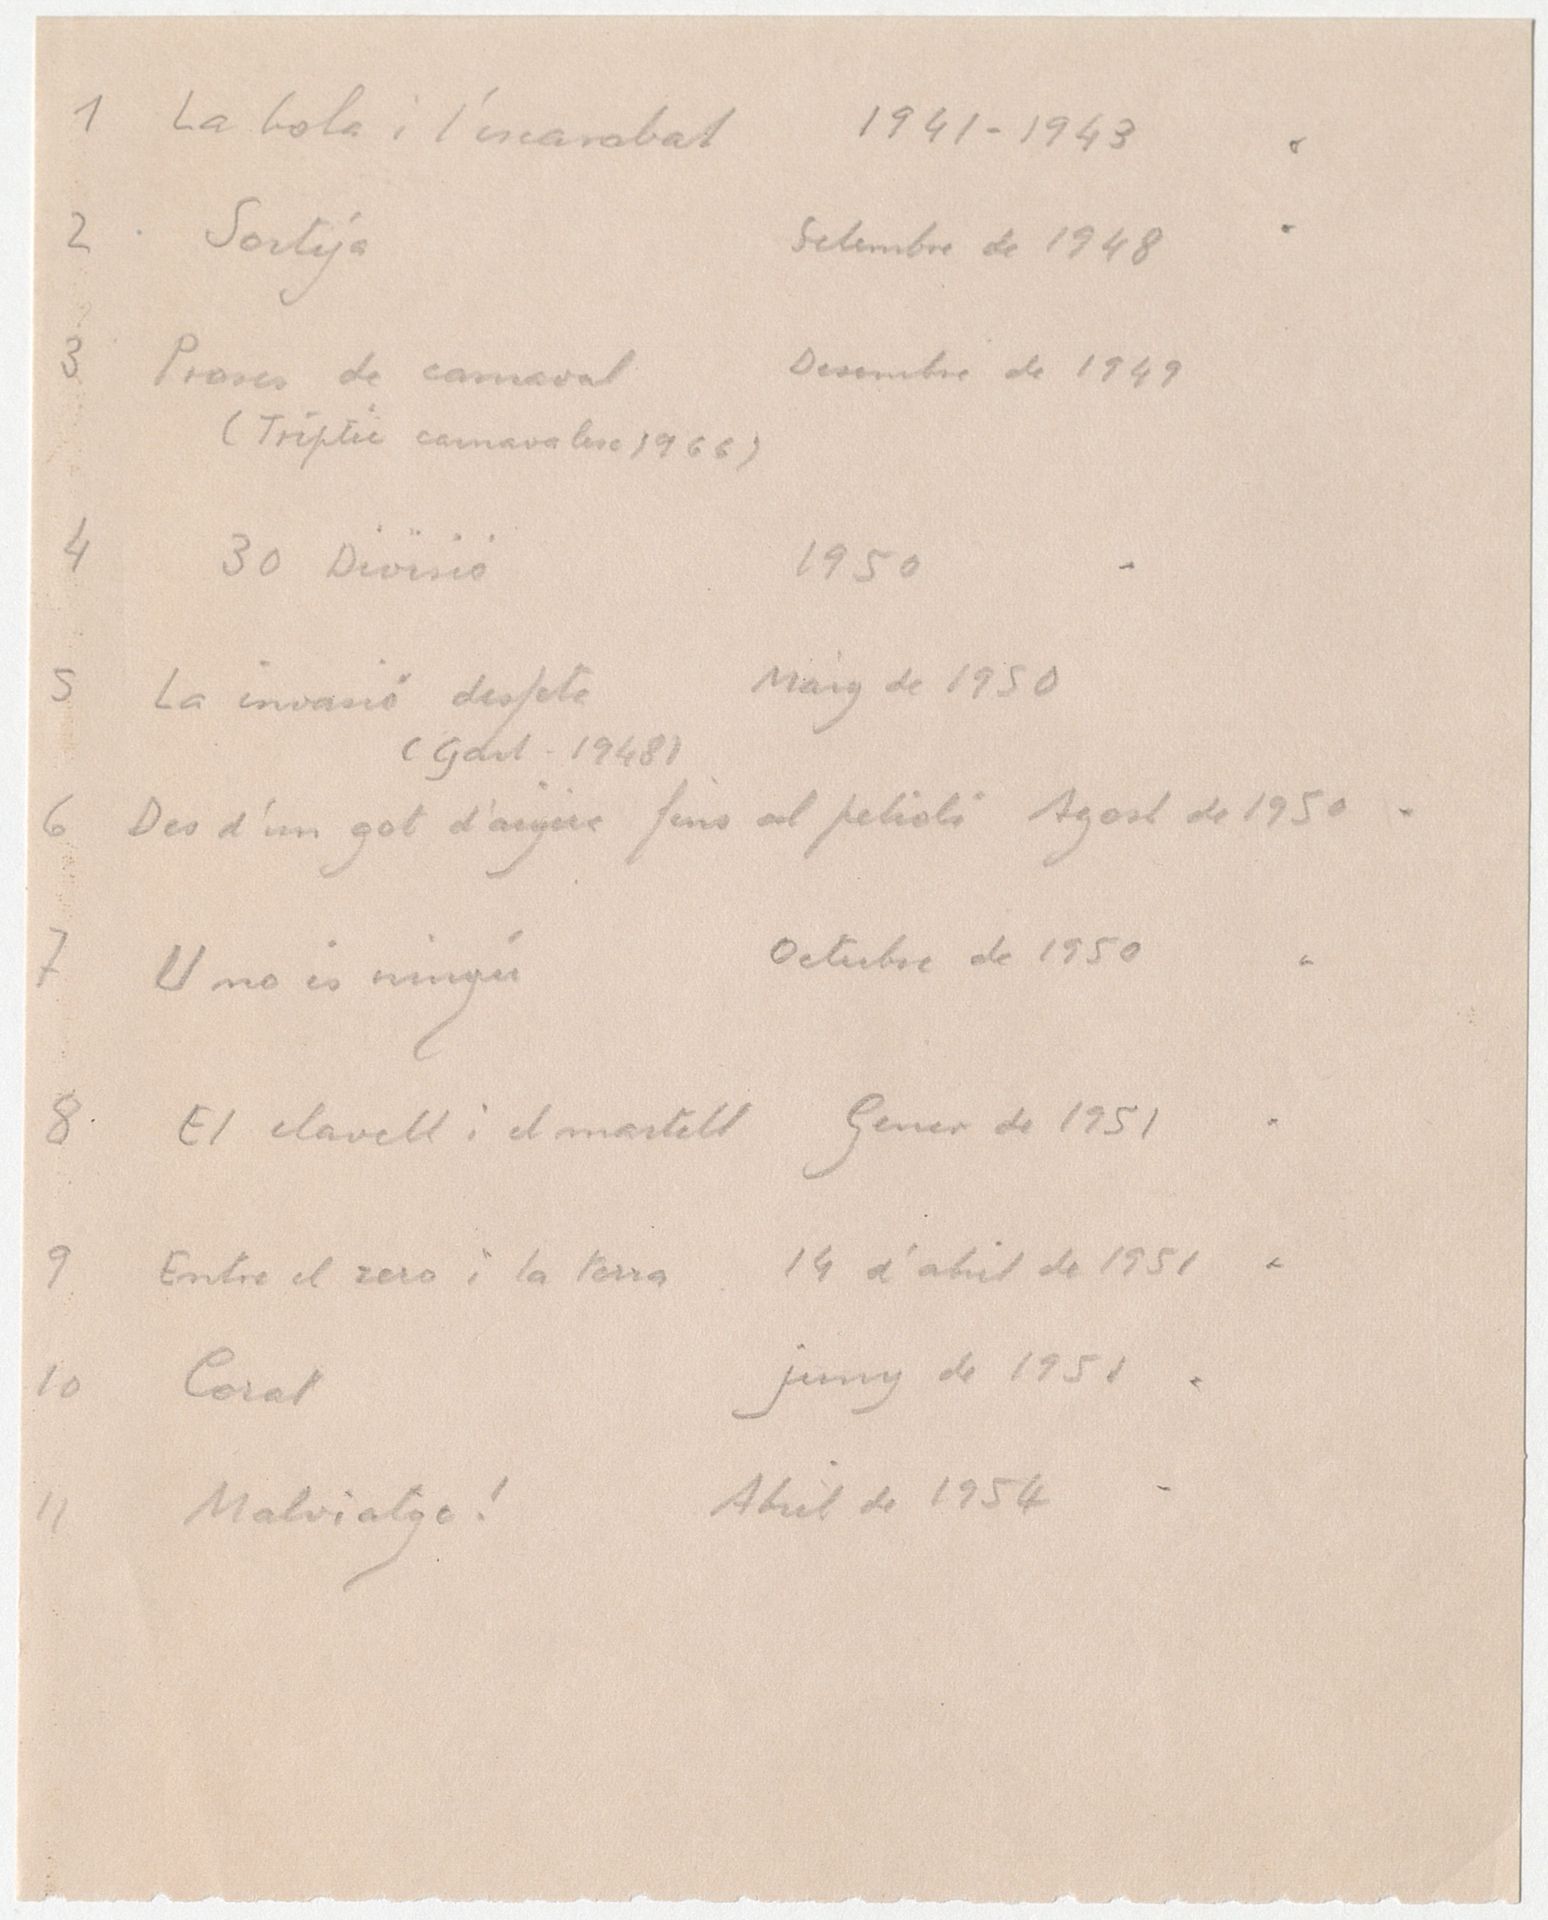 1 La bola i l'escarabat 1941-1943
2 Sortija Setembre de 1948
3 Proses de carnaval Desembre de 1949
(Tríptic carnavalesc 1966)
4 30 Divisió 1950
5 La invasió desfeta Maig de 1950
(Gart - 1948)
6 Des d'un got d'aigua fins al petroli Agost de 1950
7 U no és ningú Octubre de 1950
8. El clavell i el martell Gener de 1951
9 Entre el zero i la terra 14 d'abril de 1951
10 Corat juny de 1951
11 Malviatge! Abril de 1954